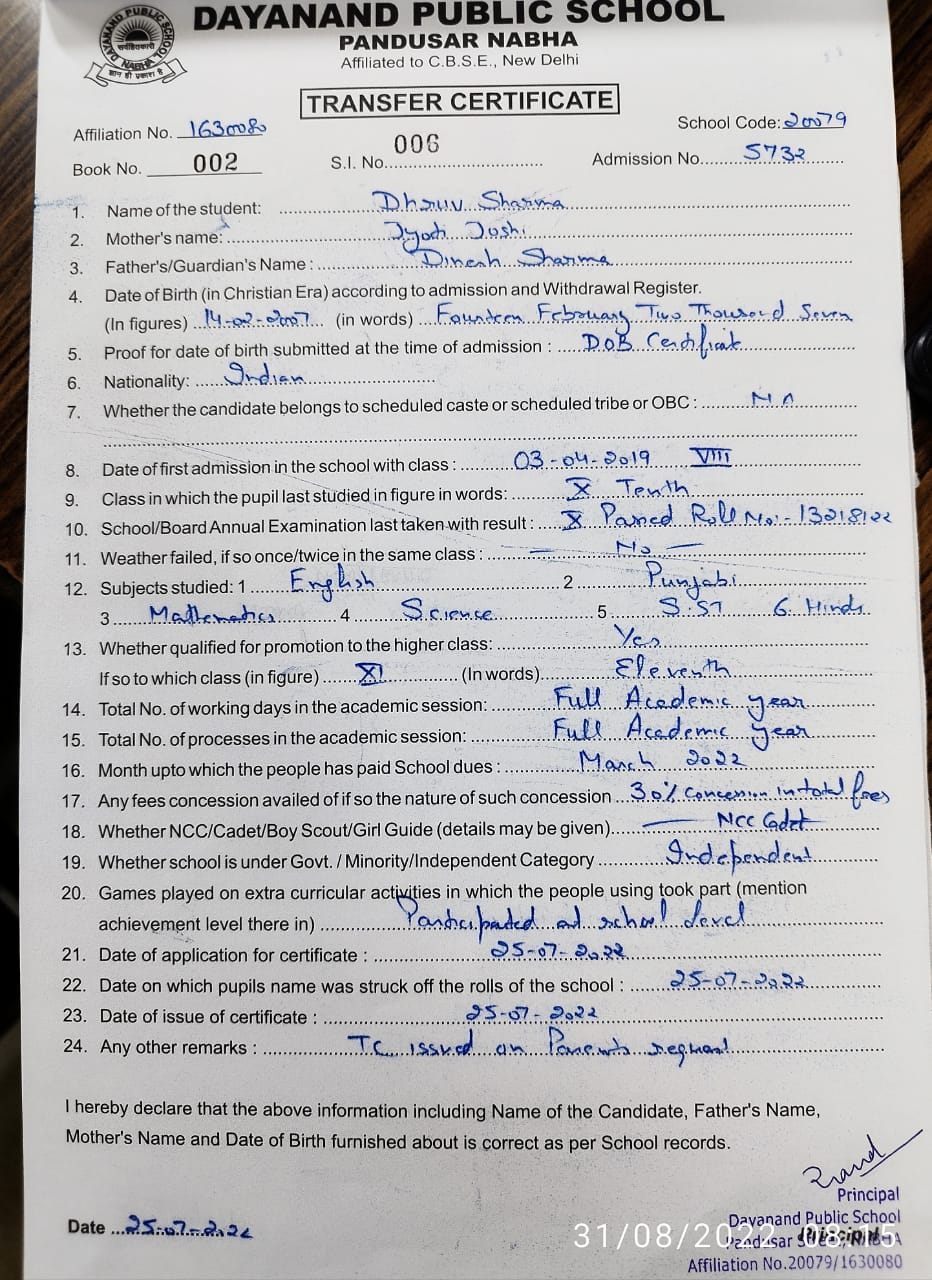 DAYANAND PUBLIC SCHOOL
PANDUSAR NABHA
Affiliated to C.B.S.E., New Delhi
DAYANAND PUBLIC SCHOOL
सर्वहितकारी
NABHA
ज्ञान ही प्रकाश है
TRANSFER CERTIFICATE
Affiliation No. 1630080 School Code: 20079
Book No. 002 S.I. No. 006 Admission No. 5732
1. Name of the student: Dhruv Sharma
2. Mother's name: Jyoti Joshi
3. Father's/Guardian's Name : Dinesh Sharma
4. Date of Birth (in Christian Era) according to admission and Withdrawal Register.
(In figures) 14-02-2007 (in words) Fourteen February Two Thousand Seven
5. Proof for date of birth submitted at the time of admission : DOB Certificate
6. Nationality: Indian
7. Whether the candidate belongs to scheduled caste or scheduled tribe or OBC : NA
8. Date of first admission in the school with class : 03-04-2019 VIII
9. Class in which the pupil last studied in figure in words: X Tenth
10. School/Board Annual Examination last taken with result : X Passed Roll No:- 13218122
11. Weather failed, if so once/twice in the same class : — No —
12. Subjects studied: 1 English 2 Punjabi
3 Mathematics 4 Science 5. S.ST 6. Hindi
13. Whether qualified for promotion to the higher class: Yes
If so to which class (in figure) XI (In words) Eleventh
14. Total No. of working days in the academic session: Full Academic year
15. Total No. of processes in the academic session: Full Academic year
16. Month upto which the people has paid School dues : March 2022
17. Any fees concession availed of if so the nature of such concession 30% concession in total fees
18. Whether NCC/Cadet/Boy Scout/Girl Guide (details may be given) — NCC Cadet
19. Whether school is under Govt. / Minority/Independent Category Independent
20. Games played on extra curricular activities in which the people using took part (mention
achievement level there in) Participated at school level
21. Date of application for certificate : 25-07-2022
22. Date on which pupils name was struck off the rolls of the school : 25-07-2022
23. Date of issue of certificate : 25-07-2022
24. Any other remarks : TC issued on Parents request
I hereby declare that the above information including Name of the Candidate, Father's Name,
Mother's Name and Date of Birth furnished about is correct as per School records.
Principal
Date 25-07-2022 Dayanand Public School
31/08/2022 08:15
Pandusar NABHA
Principal
Affiliation No.20079/1630080